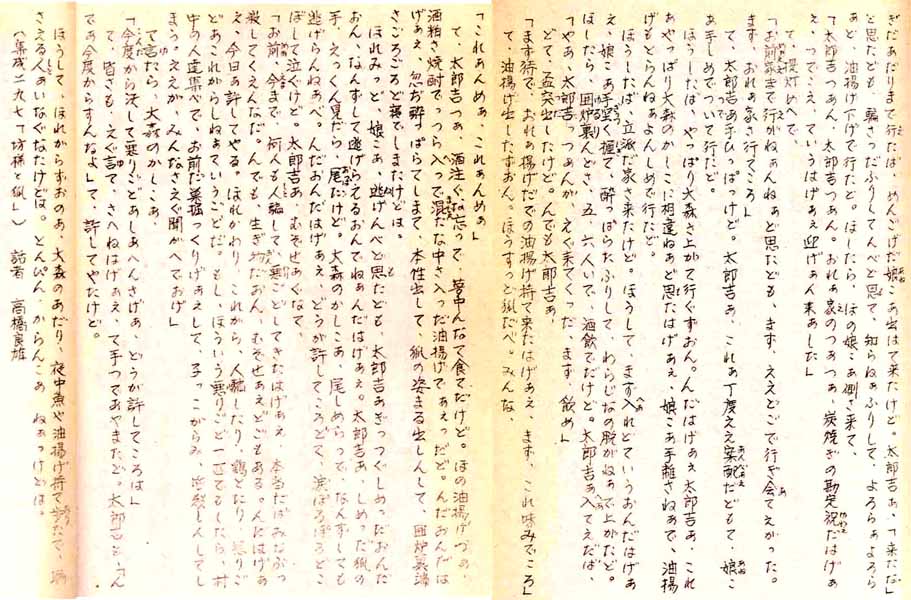 ぎだあだり大森のあだり、えたば、めんごげだ娘こあ出はて来たけど。太郎吉あ、「来たな」
と思たども、騙さっだふりしてんべど思て、知らねぁふりして、よろらぁよろら
ぁど、油揚げ下げで行たど。ほしたら、ほの娘こあ側さ来て、
「太郎吉つぁん、太郎吉つぁん。おれぁ家のつぁつぁ、炭焼ぎの勘定祝だはげぁ
え、つてこえ、ていうはげぁえ迎げぁん来あした」
て、提灯めへで、
「お前家まで行がねぁんねぁど思たども、まず、ええどごで行ぎ会てえがった。
まず、おれぁ家さ行てころ」
て、太郎吉あ手ひっぱっけど。太郎吉ぁ、これぁ丁度ええ案配だどもて、娘こ
ぁ手しめでついて行だど。
ほうしたば、やっぱり大森のかしこに相違ねぁど思たはげぁえ、娘こあ手離さねぁで、油揚
げもどらんねぁよんしめで行たど。
ほうしたば、立派だ家さ来たけど。ほうして、まず入れどていうおんだはげぁ
え、娘こあ手堅ぐ握て、酔っぱらたふりして、わらじなの脱がねぁで上がたど。
ほしたら、囲炉裏んどさ、五、六人いで、酒飲でだけど。太郎吉ぁ入てえだば、
「やあ、太郎吉つぁんか、えぐ来てくった、まず、飲め」
どて、盃突出したけど。んでも太郎吉ぁ、
「まず待で、おれぁ揚げだでの油揚げ持て来たはげぁえ、まず、これ味みでころ」
て、油揚げ出したずおん。ほうすっど狐だべ。みんな、
「これあんめぁ、これぁんめぁ」
て、太郎吉つぁさ、酒注ぐな忘って、夢中んなて食てだけど。ほの油揚げづぁ、
酒粕さ焼酎でっつら入っで混だな中さ入っだ油揚げで、あえっだど。んだおんだは
げぁえ、忽ぢお酔すっぱらてしまて、本性出して、狐の姿まる出しんして、囲炉裏端
さごろごろど寝でしまたけどは。
ほれみっど、娘こあ、逃げんべど思たども、太郎吉あぎっつぐしめっだおんだ
おん、なんずして逃げらえるおんでねぁんだはげぁえ。太郎吉ぁ、しめっだ狐の
手、えっくん見だら、尾だけど。大森のかしこあ、尾しめらって、なんずしても
逃げらんねぁあべ。んだおんだはげぁえ、どうが許してころどて、涙ぼろぼろどこ
ぼして泣ぐけど。太郎吉あ、むぞせぁぐなて、
「お前、今まで、何人も人騙して寒ごどしてきたはげぁえ、本当だばみなぶっ
殺してくえんなだ。んでも、生ぎものだおん、むぞせぁえどごもある。んだはげぁ
え、今日ぁ許してやる。ほれかわり、これから、人騙したり、鶏とたり、悪りご
どあこれがらしねぁていうごどだ。もし、ほういう悪りごど一匹でもしたら、村
中の人達集べで、お前だ巣堀っくりげぁえして、子っこがらみ、皆殺しんしてし
まう。ええが、みんなさえぐ聞がへでおげ」
て言たら、大森のかしこぁ、
「今度から決して悪りごどしあへんさげぁ、どうが許してころは」
「皆さも、えぐ言て、さへねはげぁえ」て手つであやまたど。太郎吉も、「うん
であ今度からすんなよ」て、許してやたけど。
ほうして、ほれからすおのあ、大森のあだり、夜中魚や油揚げ持て歩たて、騙
さえる人あいなぐなたけどは。とんぴん、からんこあ ねぁっけどは。
（集成二九七「坊様と狐」） 話者 高橋良雄